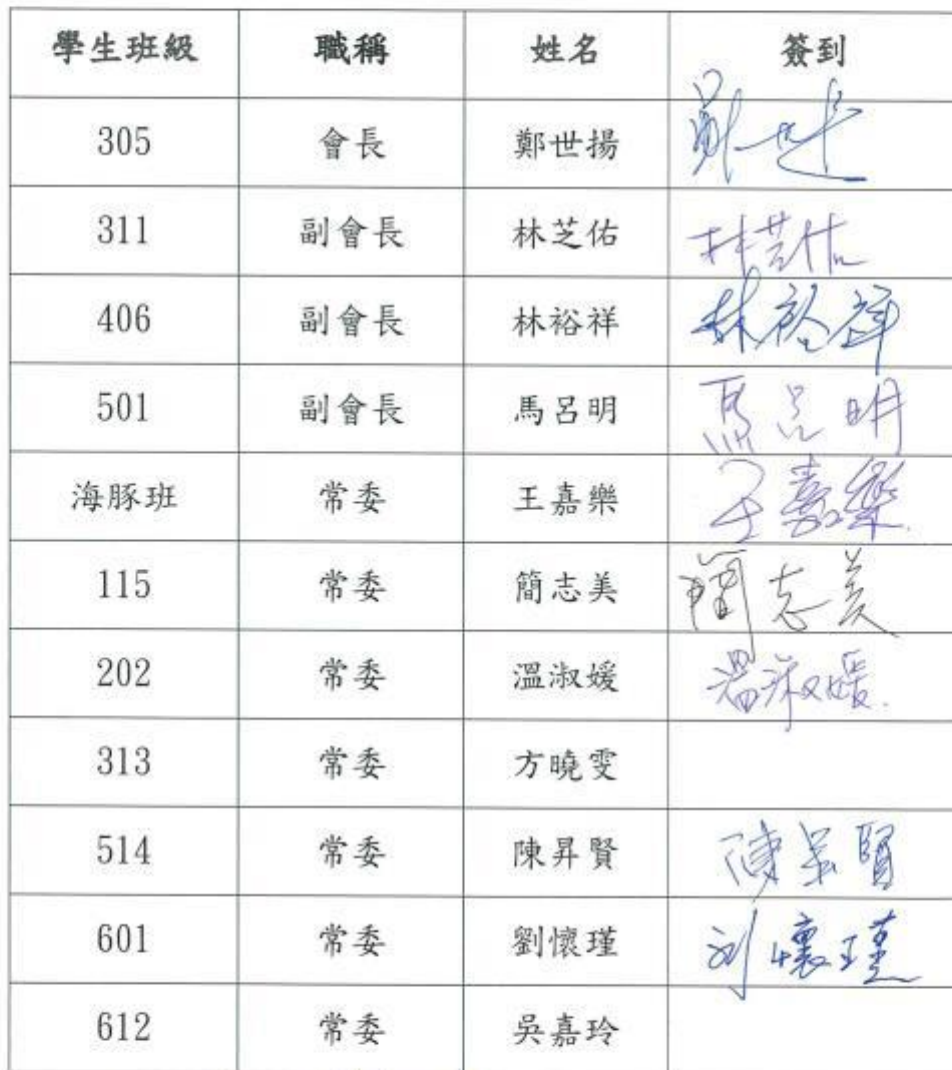 學生班級 職稱 姓名 簽到
305 會長 鄭世揚 鄭世揚
311 副會長 林芝佑 林芝佑
406 副會長 林裕祥 林裕祥
501 副會長 馬呂明 馬呂明
海豚班 常委 王嘉樂 王嘉樂
115 常委 簡志美 簡志美
202 常委 溫淑媛 溫淑媛
313 常委 方曉雯
514 常委 陳昇賢 陳昇賢
601 常委 劉懷瑾 刘懷瑾
612 常委 吳嘉玲